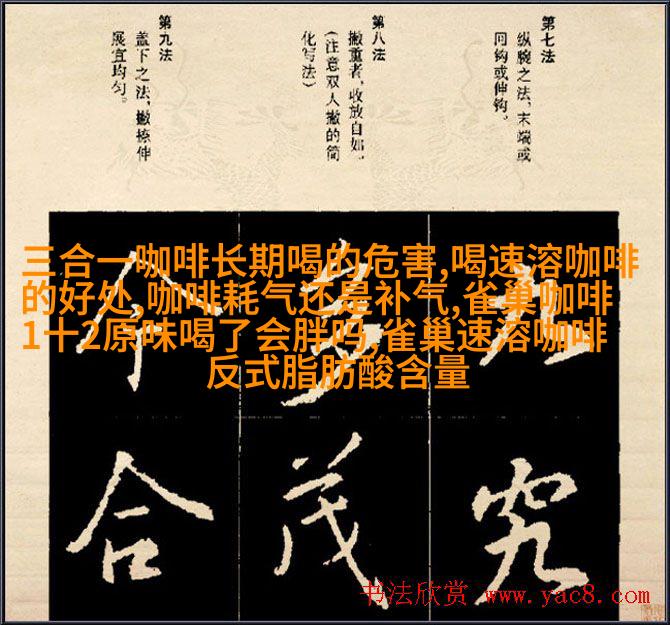 第七法
纵腕之法，末端或
回钩或伸钩。
第八法
撇重者，收放自如。
（注意双人撇的简
化写法）
第九法
盖下之法，撇捺伸
展宜均匀。
三合一咖啡长期喝的危害,喝速溶咖啡
的好处,咖啡耗气还是补气,雀巢咖啡
1十2原味喝了会胖吗,雀巢速溶咖啡
反式脂肪酸含量
九
多
介
究
茂
合
书法欣赏 www.yac8.com